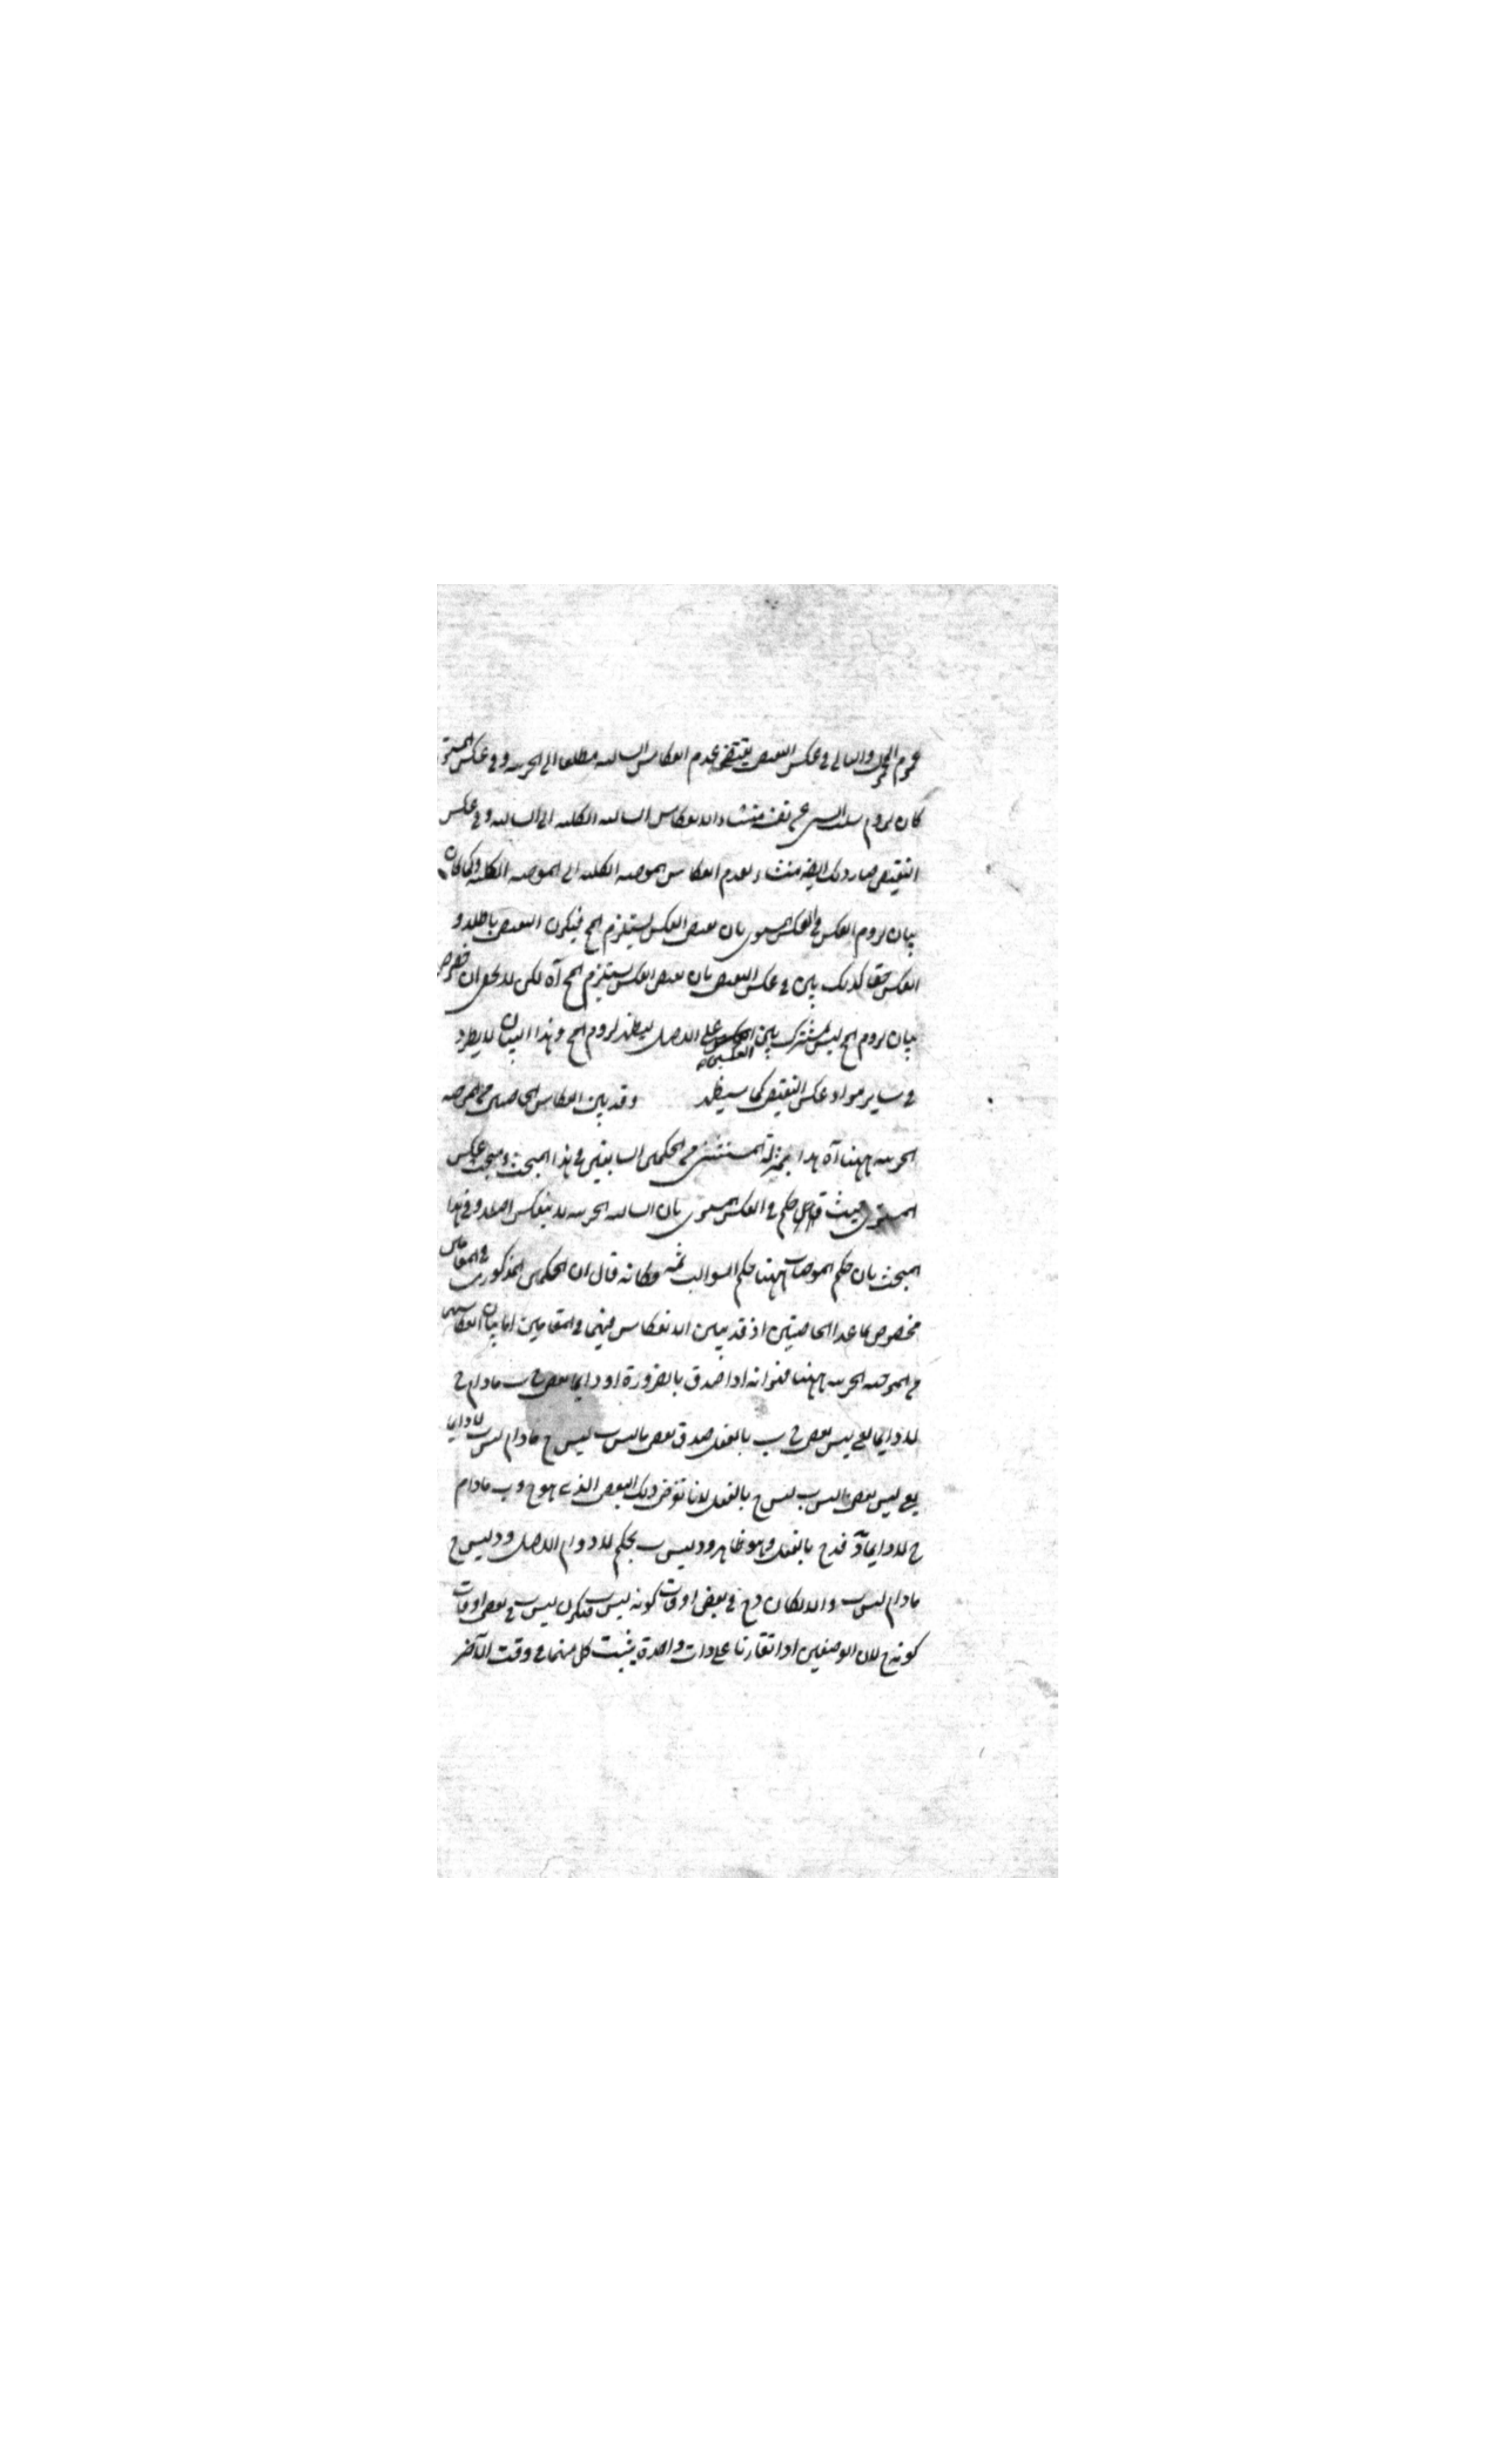 عموم المحمول والتالى فى عكس النقيض يقتضى عدم انعكاس السالبه مطلقا الى الجزئيه وفى عكس المستوى
كان لزوم سلب الشى عن نفسه منشاء الانعكاس السالبه الكليه الى السالبه وفى عكس
النقيض صار ذلك ايضا منشاء لعدم انعكاس الموجبه الكليه الى الموجبه الكليه وكما كان
بيان لزوم العكس فى العكس المستوى بان نقيض العكس يستلزم المح فيكون النقيض باطلا و
العكس حقا كذلك بين فى عكس النقيض بان نقيض العكس يستلزم المح آه لكن لا يخفى ان خصوص
بيان لزوم المح ليس بمشترك بين العكسين على الاصل ليظهر لزوم المح وهذا البيان لا يطرد
فى ساير مواد عكس النقيض كما سيظهر وقد بين انعكاس الخاصتين من الموجبه
الجزئيه ههنا آه هذا بمنزلة المستثنى من الحكمين السابقين فى هذا المبحث ومبحث عكس
المستوى حيث حكم فى العكس المستوى بان السالبه الجزئيه لا ينعكس اصلا وفى هذا
المبحث بان حكم الموجبات ههنا حكم السوالب ثمه فكانه قال ان الحكمين المذكورين فى المقامين
مخصوص بما عدا الخاصتين اذ قد بين الانعكاس فيهما فى المقامين اما بيان انعكاسهما
من الموجبه الجزئيه ههنا فهو انه اذا صدق بالضرورة او دايما بعض ج ب مادام ج
لا دايما اى ليس بعض ج ب بالفعل صدق بعض ما ليس ب ليس ج مادام ليس ب لا دايما
اى ليس بعض ما ليس ب ليس ج بالفعل لانا نفرض ذلك البعض الذى هو ج وب مادام
ج لا دايما د فد ج بالفعل وهو ظاهر ود ليس ب بحكم لا دوام الاصل ود ليس ج
مادام ليس ب والا لكان د ج فى بعض اوقات كونه ليس ب فيكون ليس ب فى بعض اوقات
كونه ج لان الوصفين اذا تقارنا على ذات واحدة يثبت كل منهما فى وقت الآخر